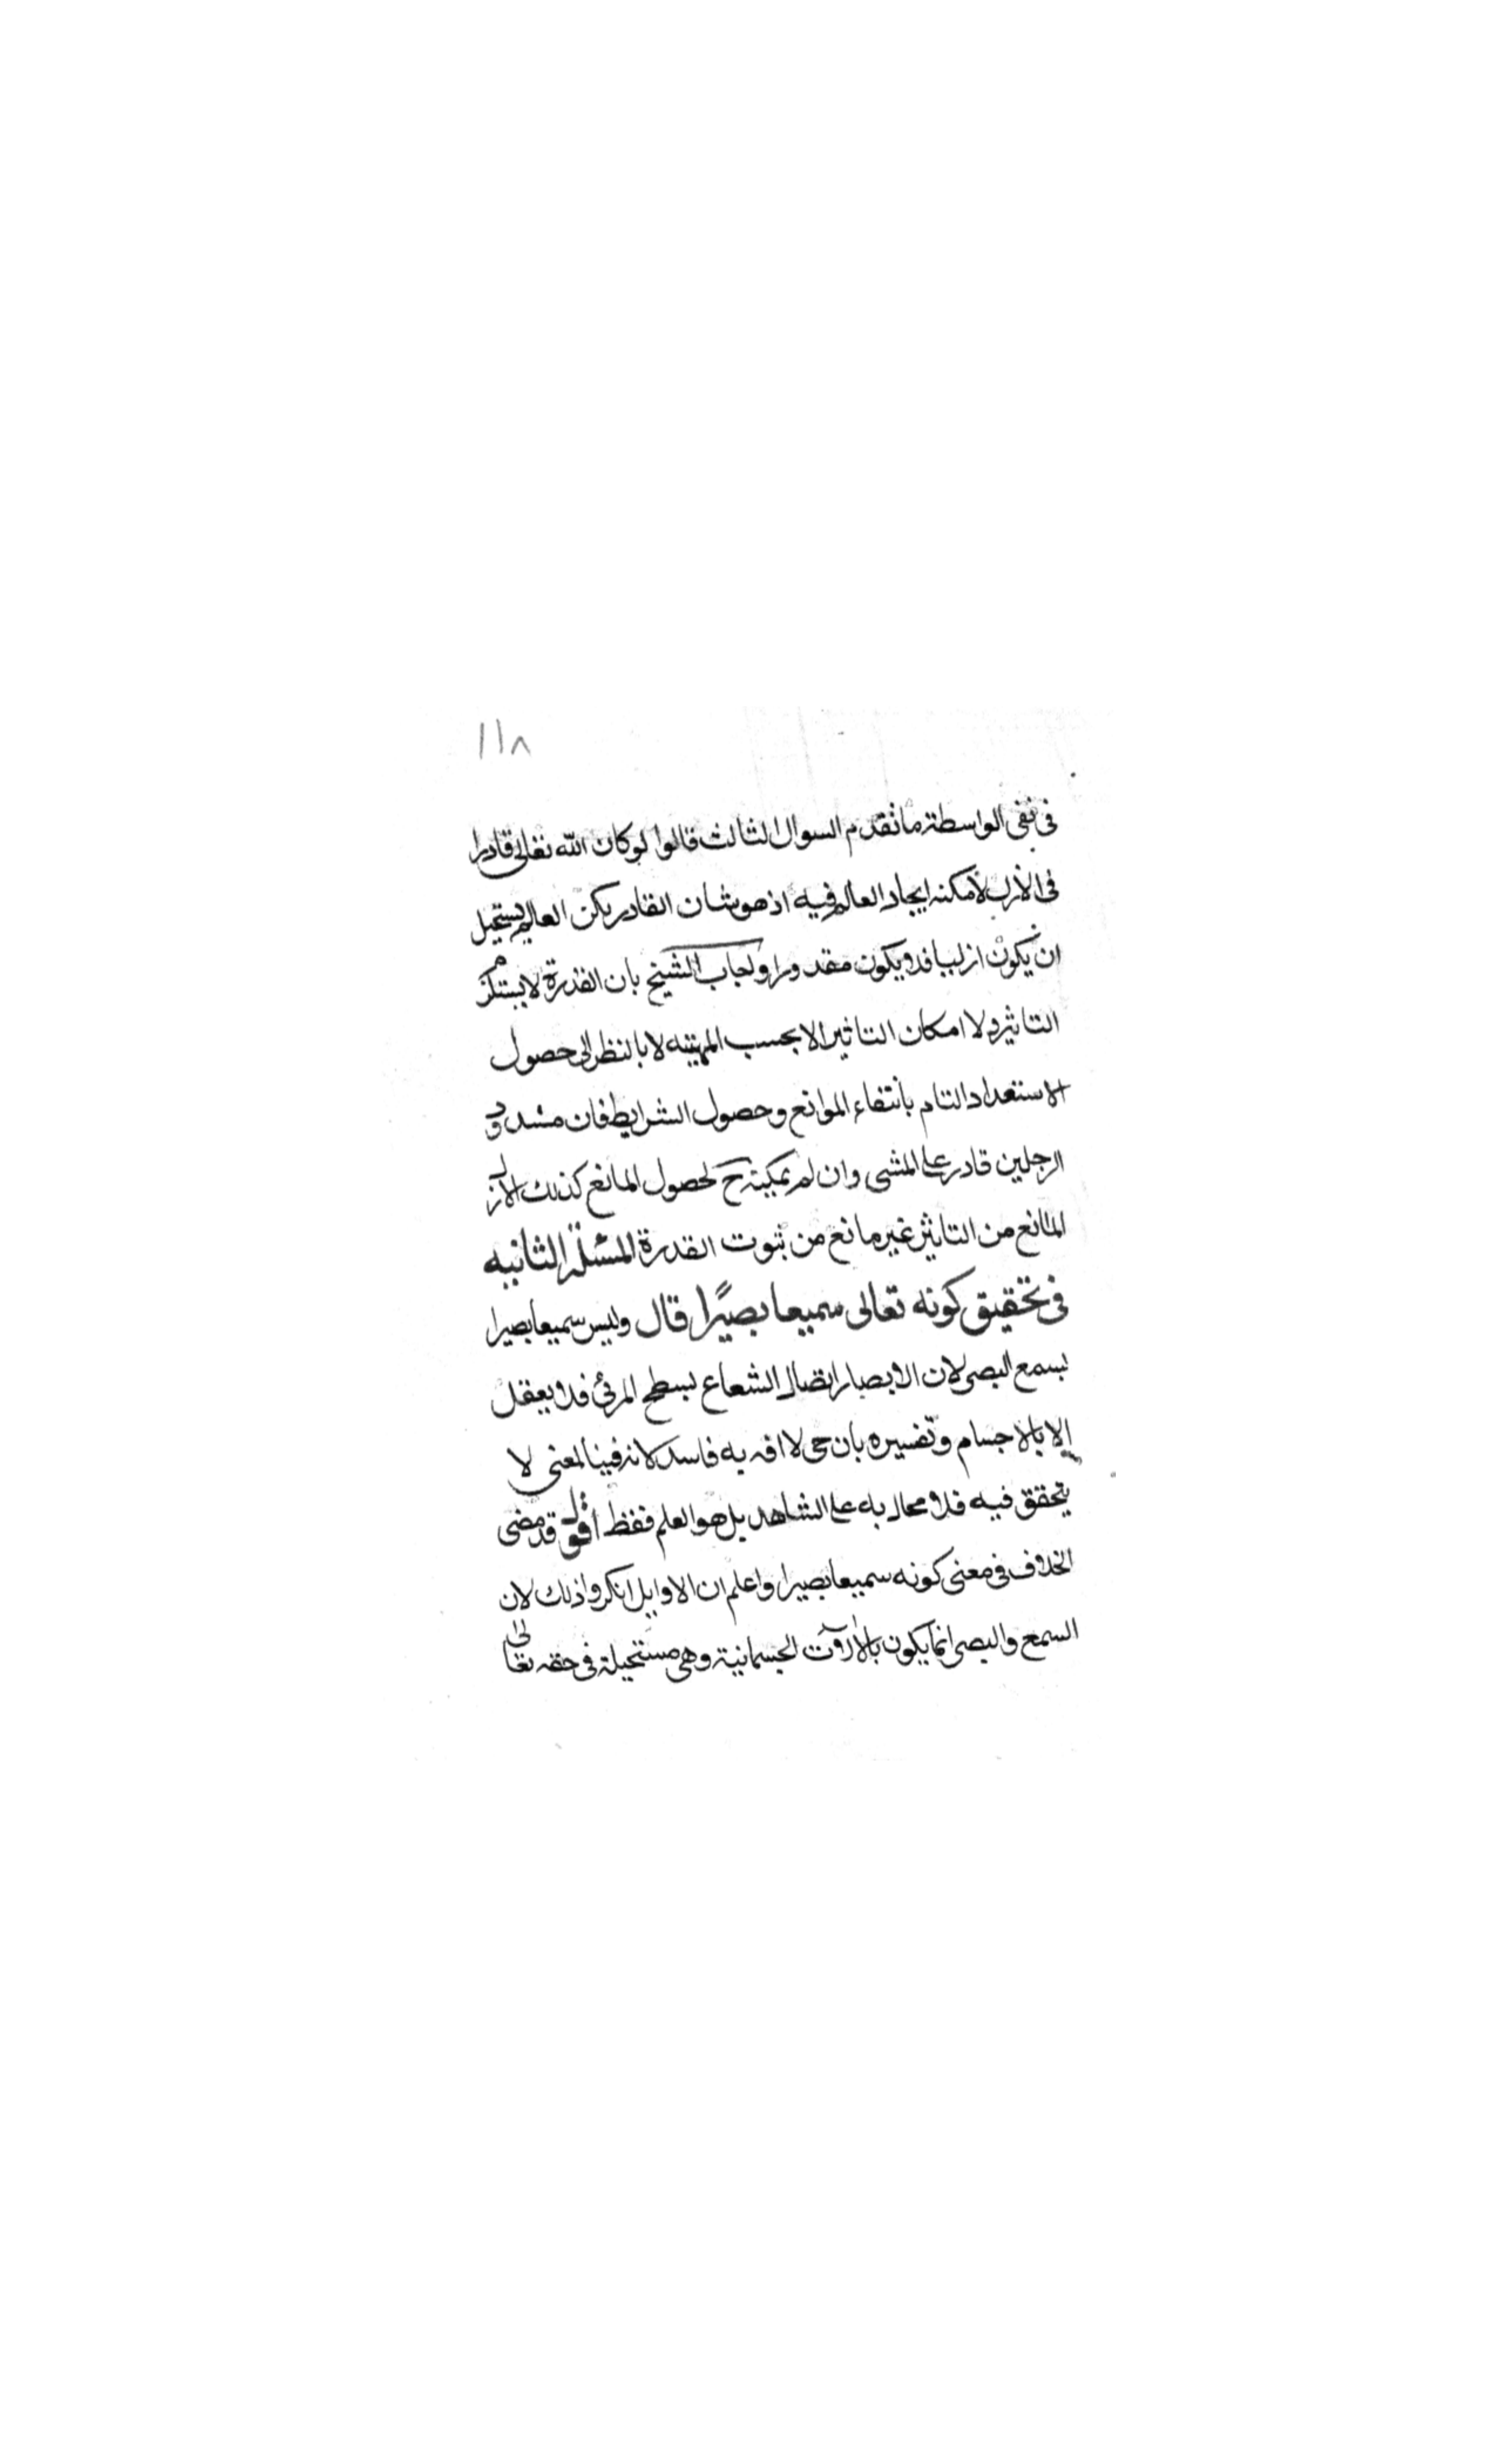 ١١٨
في نفى الواسطة ما تقدم السوال الثالث قالوا لو كان الله تعالى قادرا
في الأزل لأمكنه ايجاد العالم فيه اذ هو شان القادر لكن العالم يستحيل
ان يكون ازليا فلا يكون مقدورا واجاب الشيخ بان القدرة لا يستلزم
التاثير ولا امكان التاثير الا بحسب المهية لا بالنظر الى حصول
الاستعداد التام بانتفاء الموانع وحصول الشرايط فان مشدود
الرجلين قادر على المشى وان لم يمكنه ح لحصول المانع كذلك الازل
المانع من التاثير غير مانع من ثبوت القدرة المسئلة الثانيه
في تحقيق كونه تعالى سميعا بصيرًا قال وليس سميعا بصيرا
بسمع البصر لان الابصار اتصال الشعاع بسطح المرئى فلا يعقل
الا بالاجسام وتفسيره بان حى لا افه به فاسد لانه فينا لمعنى لا
يتحقق فيه فلا محال به على الشاهد بل هو العلم فقط أقول قد مضى
الخلاف في معنى كونه سميعا بصيرا واعلم ان الاوايل انكروا ذلك لان
السمع والبصر انما يكون بالآلات الجسمانية وهي مستحيلة في حقه تعالى